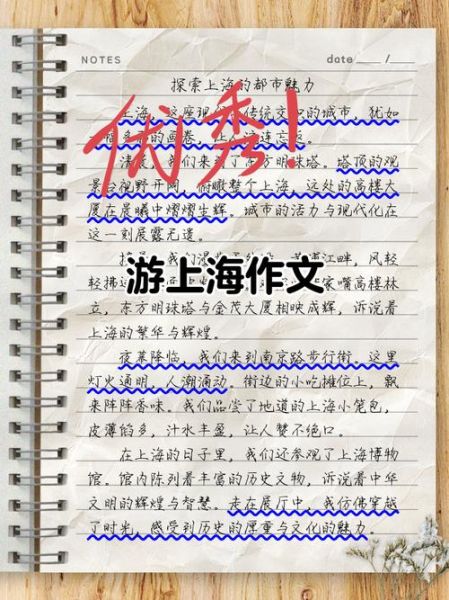 NOTES
date ___ / ___
探索上海的都市魅力
优秀!
上海,这座现 传统交织的城市,犹如
的画卷,
清晨,我们来到了东方明珠塔。塔顶的观
景台视野开阔,俯瞰整个上海。远处的高楼大
厦在晨曦中熠熠生辉。城市的活力与现代化在
这一刻展露无遗。
我们 江畔,风轻
轻拂 家嘴高楼林
游上海作文
立,东方明珠塔与金茂大厦相映成辉,诉说着
上海的繁华与辉煌。
夜幕降临,我们来到南京路步行街。这里
灯火通明,人潮涌动。街边的小吃摊位上,飘
来阵阵香味。我们品尝了地道的上海小笼包,
皮薄馅多,汁水丰盈,让人赞不绝口。
在上海的日子里,我们还参观了上海博物
馆。馆内陈列着丰富的历史文物,诉说着中华
文明的辉煌与智慧。走在展厅中,我仿佛穿越
了时光,感受到历史的厚重与文化的魅力。